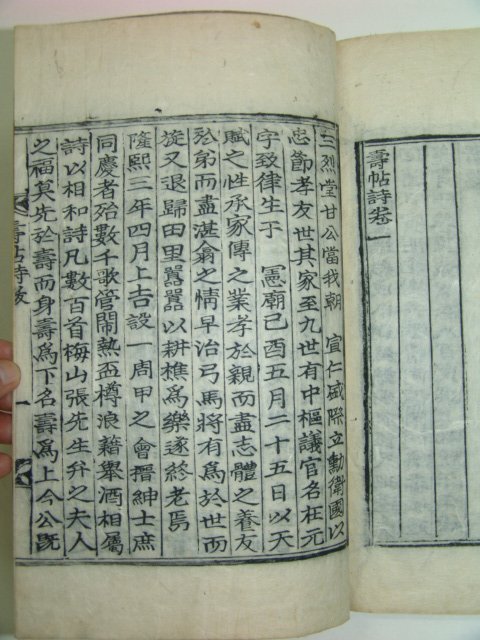 壽帖詩卷一
三烈堂甘公當我朝 宣仁盛際立勳衛國以
忠節孝友世其家至九世有中樞議官名在元
字致律生于 憲廟己酉五月二十五日以天
賦之性承家傳之業孝於親而盡志體之養友
於弟而盡湛翕之情早治弓馬將有爲於世而
旋又退歸田里囂囂以耕樵爲樂遂終老焉
隆熙三年四月上吉設一周甲之會搢紳士庶
同慶者殆數千歌管鬧熱盃樽浪籍擧酒相屬
詩以相和詩凡數百首梅山張先生弁之夫人
之福莫先於壽而身壽爲下名壽爲上今公旣
壽帖詩
一